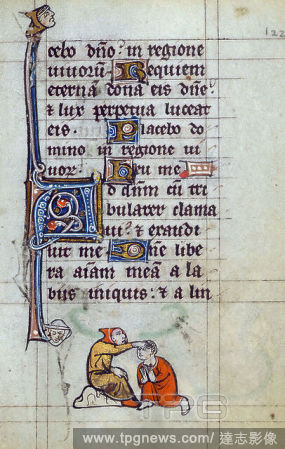 122
cebo dño in regione
uiuorū. Requiem
eternā dona eis dñe
& lux perpetua luceat
eis. Placebo do
mino in regione ui
uor. heu me
Ad dñm cū tri
bularer clama
ui: & exaudi
uit me. Dñe libe
ra aīam meā a la
bijs iniquis: & a lin
TPG
www.tpgnews.com/達志影像